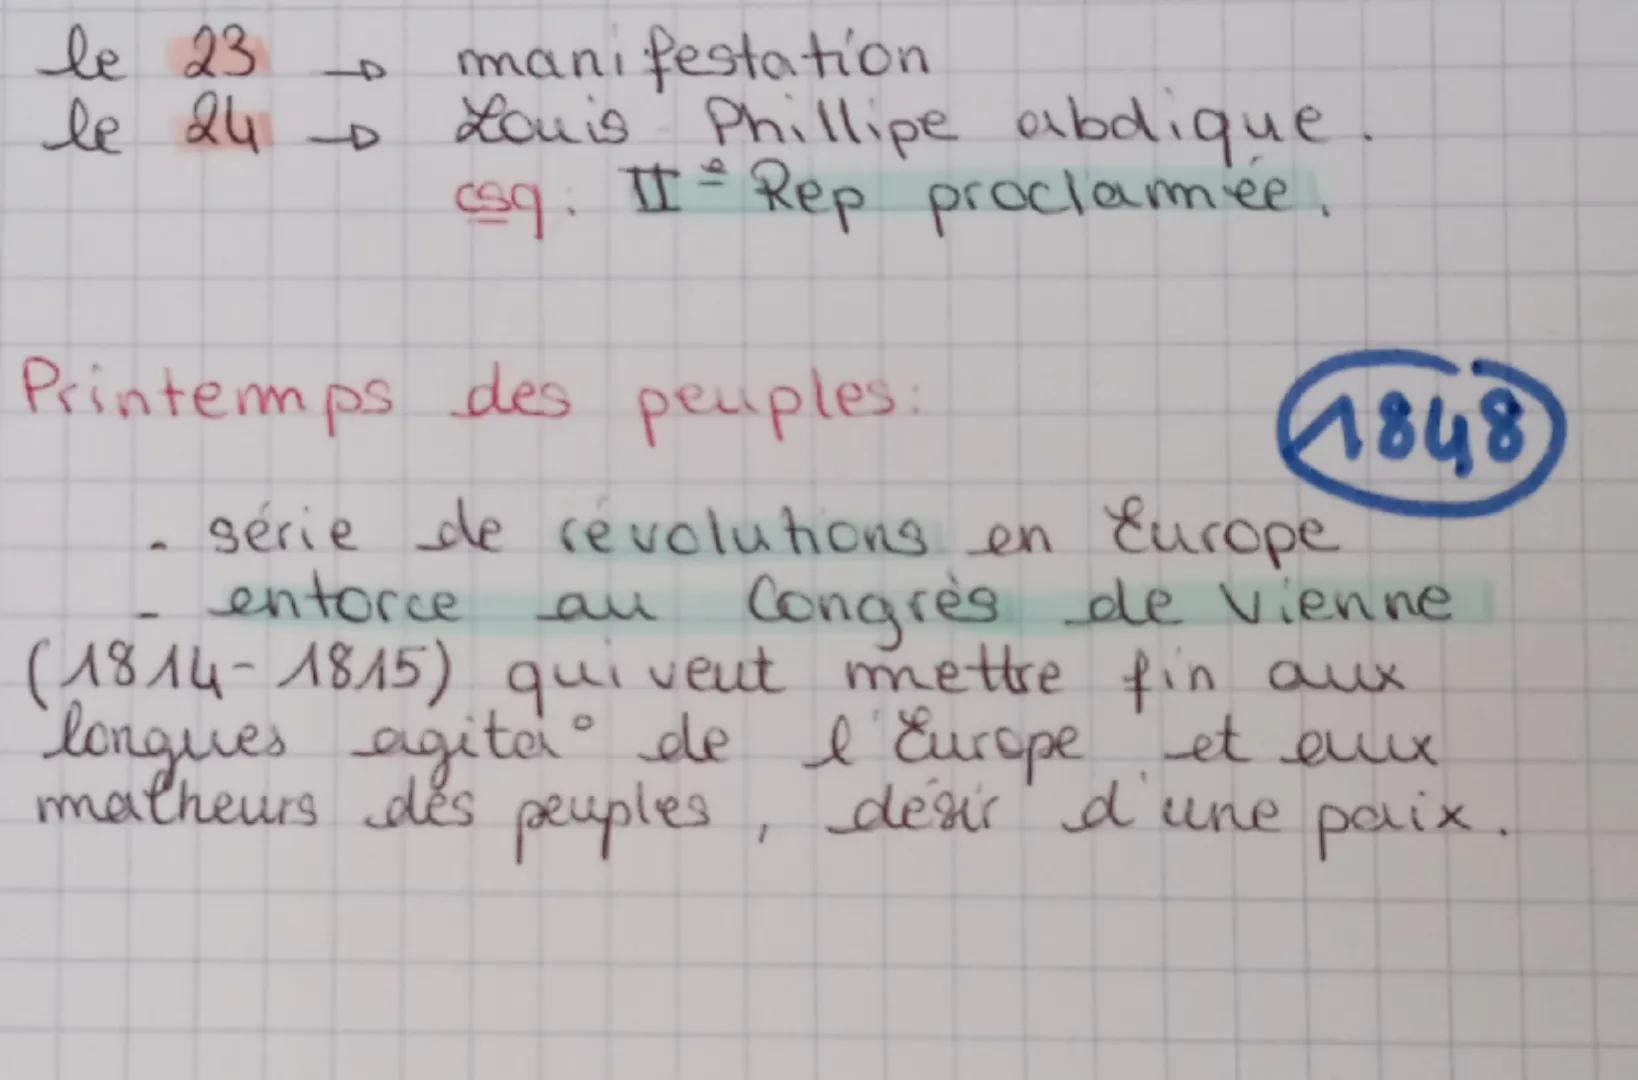 le 23 → manifestation
le 24 → Louis Phillipe abdique.
csq: IIe Rep proclamée.
Printemps des peuples:
1848
- série de révolutions en Europe
- entorce au Congrès de Vienne
(1814-1815) qui veut mettre fin aux
longues agita° de l'Europe et aux
malheurs des peuples, désir d'une paix.